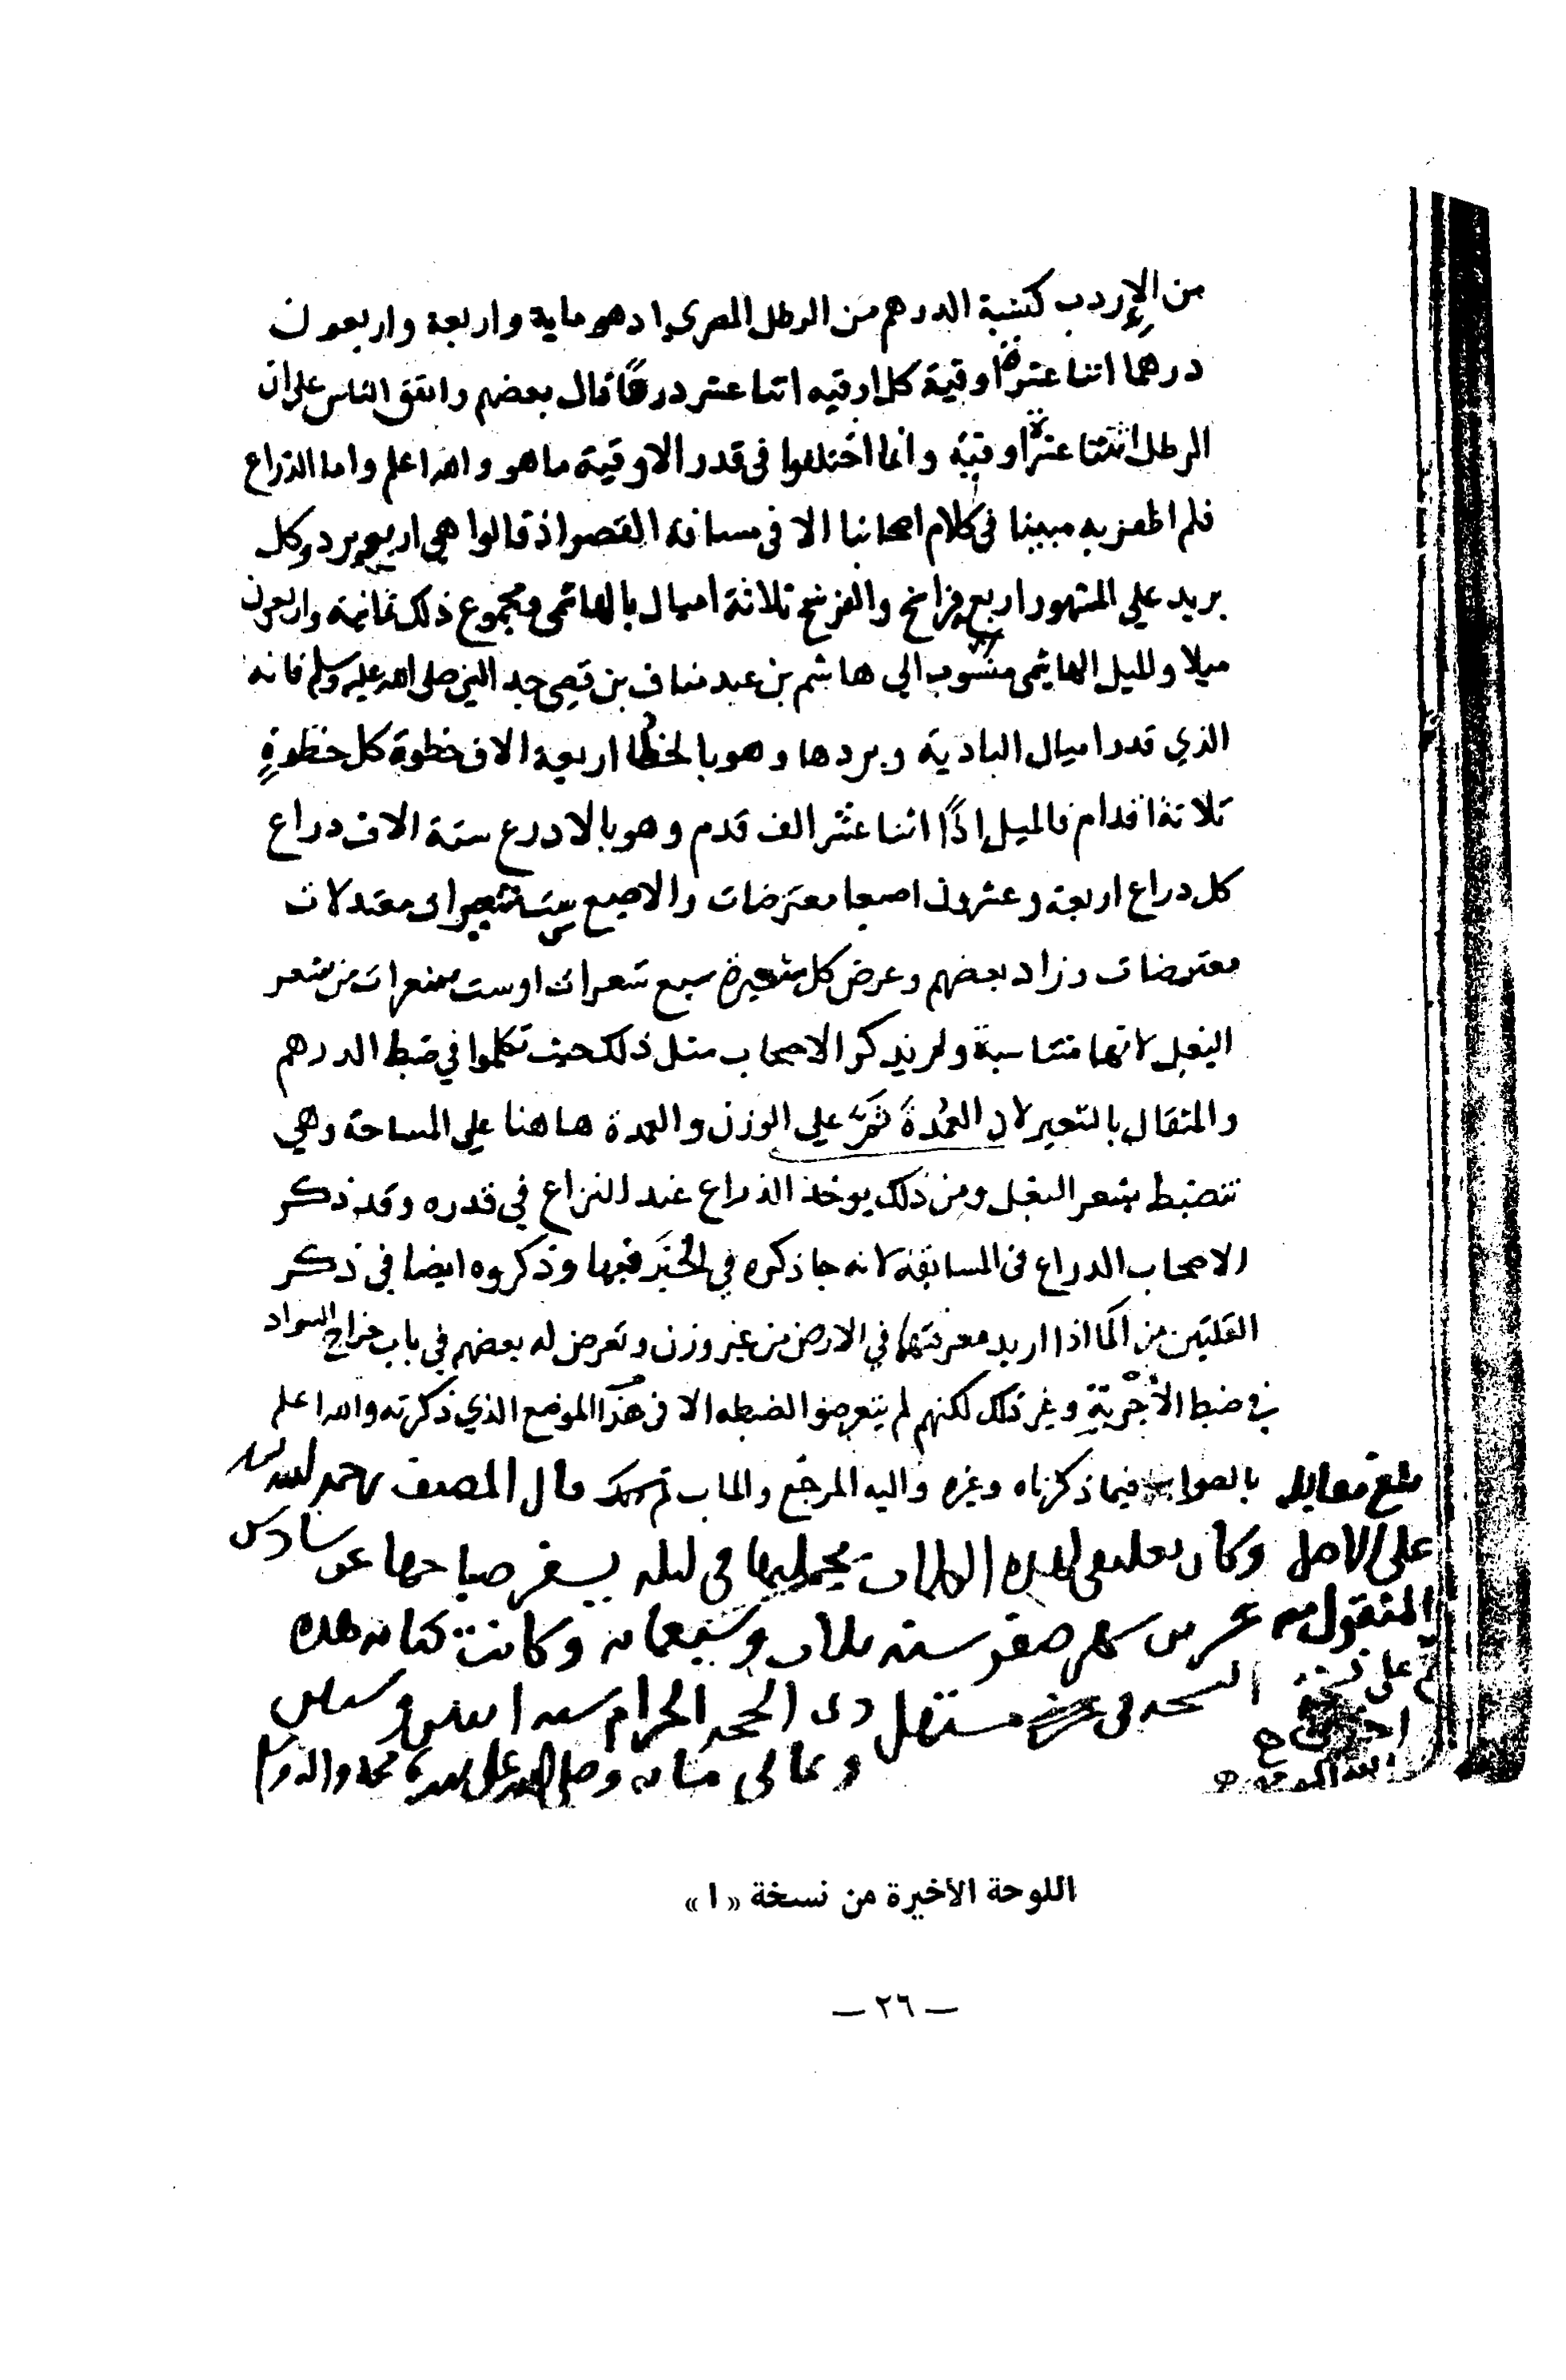 من الإردب كنسبة الدرهم من الرطل المصري اذ هو ماية واربعة واربعون
درهما اثنا عشر اوقية كل اوقيه اثنا عشر درهما قال بعضهم واتفق الناس على ان
الرطل اثنتا عشرة اوقية وانما اختلفوا فى قدر الاوقية ما هو والله اعلم واما الذراع
فلم اظفر به مبينا في كلام اصحابنا الا فى مسافة القصر اذ قالوا هي اربع برد وكل
بريد علي المشهور اربع فراسخ والفرسخ ثلاثة اميال بالهاشمى ومجموع ذلك ثمانية واربعون
ميلا والميل الهاشمى منسوب الي هاشم بن عبد مناف بن قصي جد النبي صلى الله عليه وسلم فانه
الذي قدر اميال البادية وبردها وهو بالخطا اربعة الاف خطوة كل خطوةٍ
ثلاثة اقدام فالميل اذًا اثنا عشر الف قدم وهو بالادرع ستة الاف دراع
كل دراع اربعة وعشرون اصبعا معترضات والاصبع ست شعيرات معتدلات
معترضات وزاد بعضهم وعرض كل شعيرة سبع شعرات اوست شعرات من شعر
البغل لانها متناسبة ولم يذكر الاصحاب مثل ذلك حيث تكلموا في ضبط الدرهم
والمثقال بالشعير لان العُمْدةَ ثَمَّ علي الوزن والعمدة هاهنا علي المساحة وهي
تنضبط بشعر البغل ومن ذلك يوخذ الذراع عند النزاع في قدره وقد ذكر
الاصحاب الدراع فى المسابقة لانه جا ذكره في الخبَر فيها وذكروه ايضا في ذكر
القلتين من الما اذا اريد معرفتهما في الارض من غير وزن وتعرض له بعضهم في باب خراج السواد
في ضبط الأَجْرِبَةِ وغير ذلك لكنهم لم يتعرضوا لضبطه الا فى هذا الموضع الذي ذكرته والله اعلم
بالصواب فيما ذكرناه وغيره واليه المرجع والماب قال المصنف رحمه الله
وكان تعليقى لهذه الكلمات فى ليله يسفر صباحها عن سادس
عشر من شهر صفر سنه ثلاث وسبعمائه وكانت كتابه هذه
النسخه فى مستهل ذى الحجه الحرام سنه
وثمانى مائه وصلى الله على سيدنا محمد واله
بلغ مقابله
على الاصل
المنقول منه
على نسخة
اللوحة الأخيرة من نسخة « أ »
— ٢٦ —